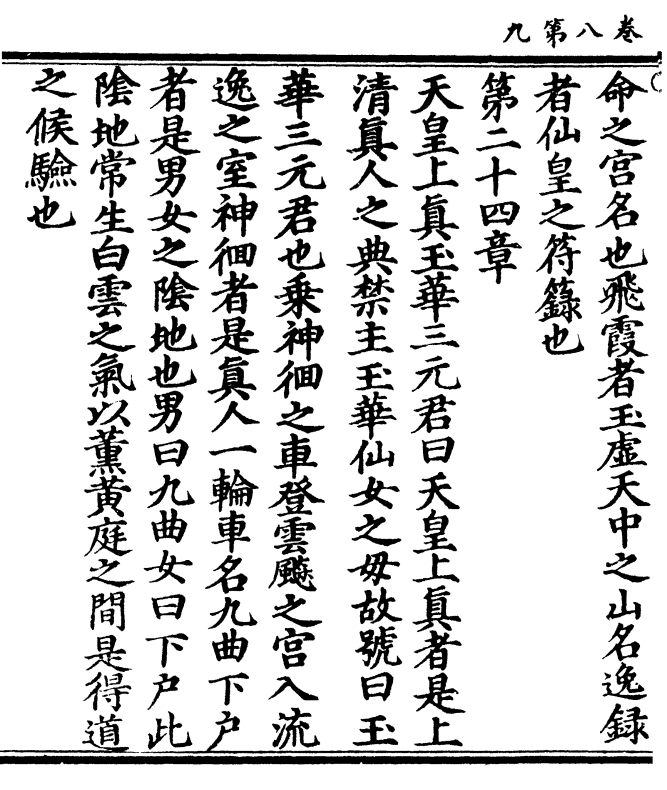 卷八第九
命之宮名也飛霞者玉虛天中之山名逸録
者仙皇之符籙也
第二十四章
天皇上眞玉華三元君曰天皇上眞者是上
清眞人之典禁主玉華仙女之母故號曰玉
華三元君也乗神徊之車登雲飈之宮入流
逸之室神徊者是眞人一輪車名九曲下户
者是男女之陰地也男曰九曲女曰下户此
陰地常生白雲之氣以薰黄庭之間是得道
之候驗也